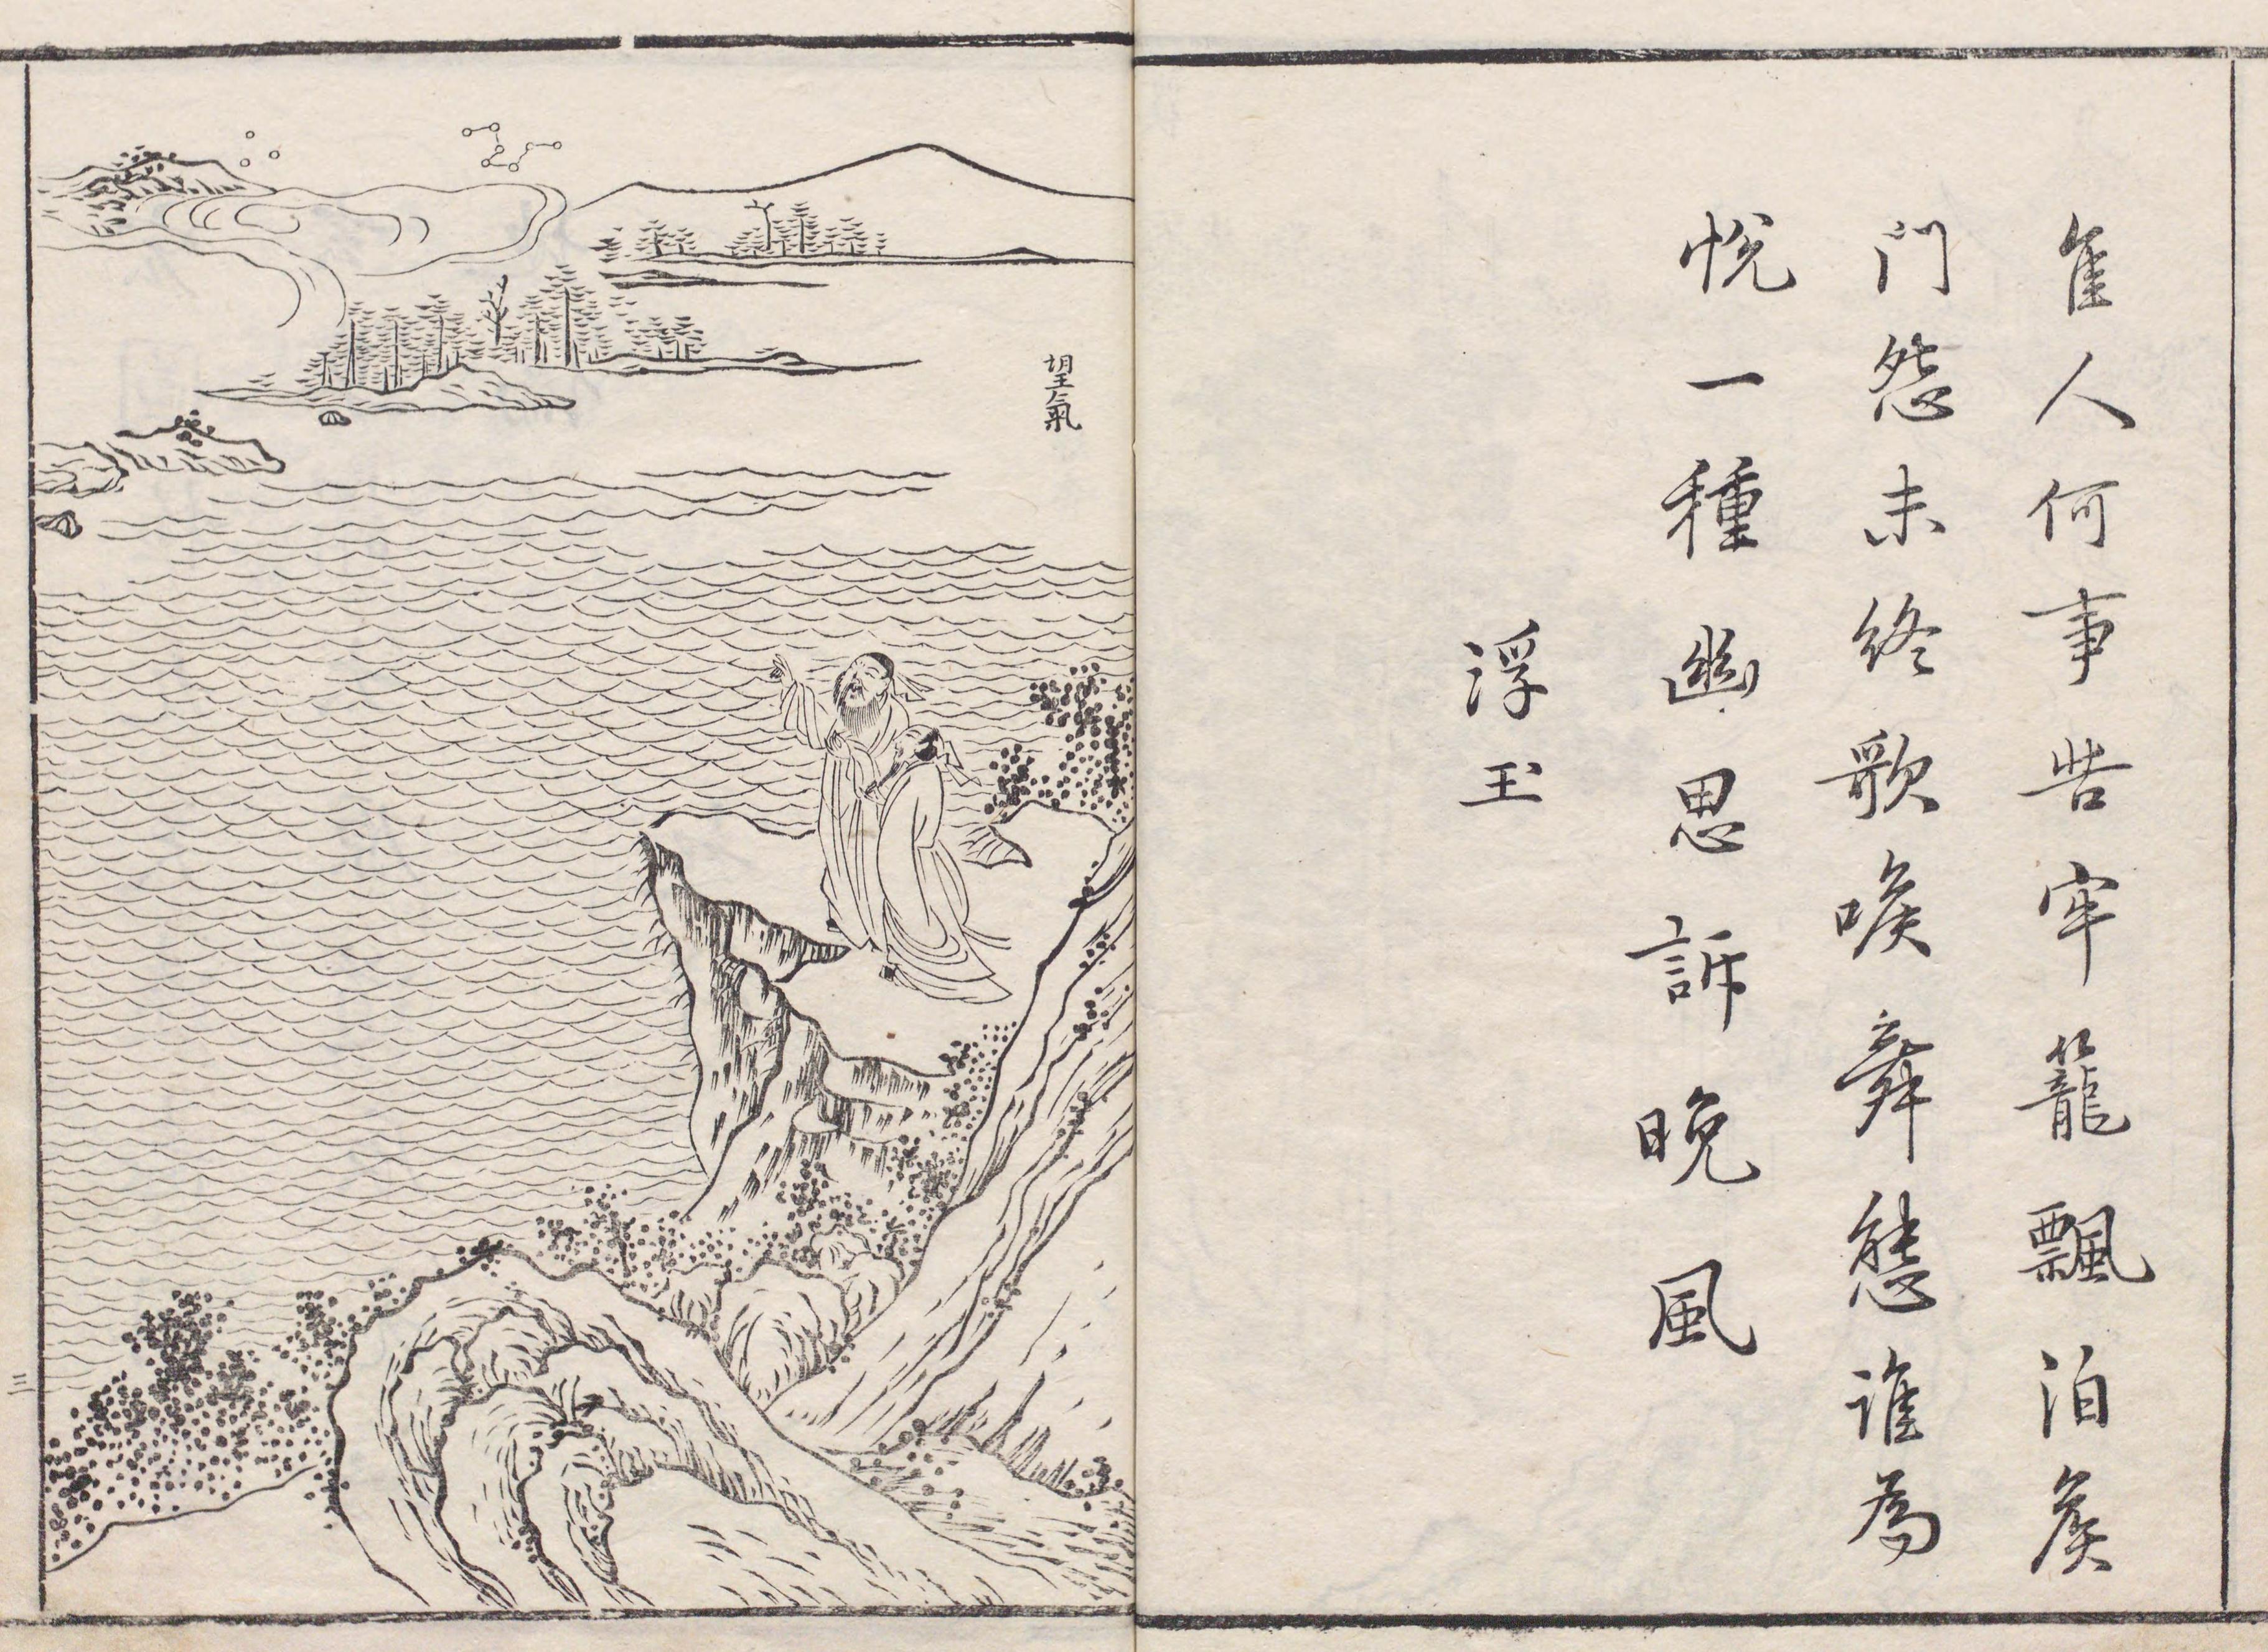 隹人何事苦牢籠飄泊矦
門怨未終歌喉舞態誰為
悅一種幽思訴晚風
浮玉
望氣
三